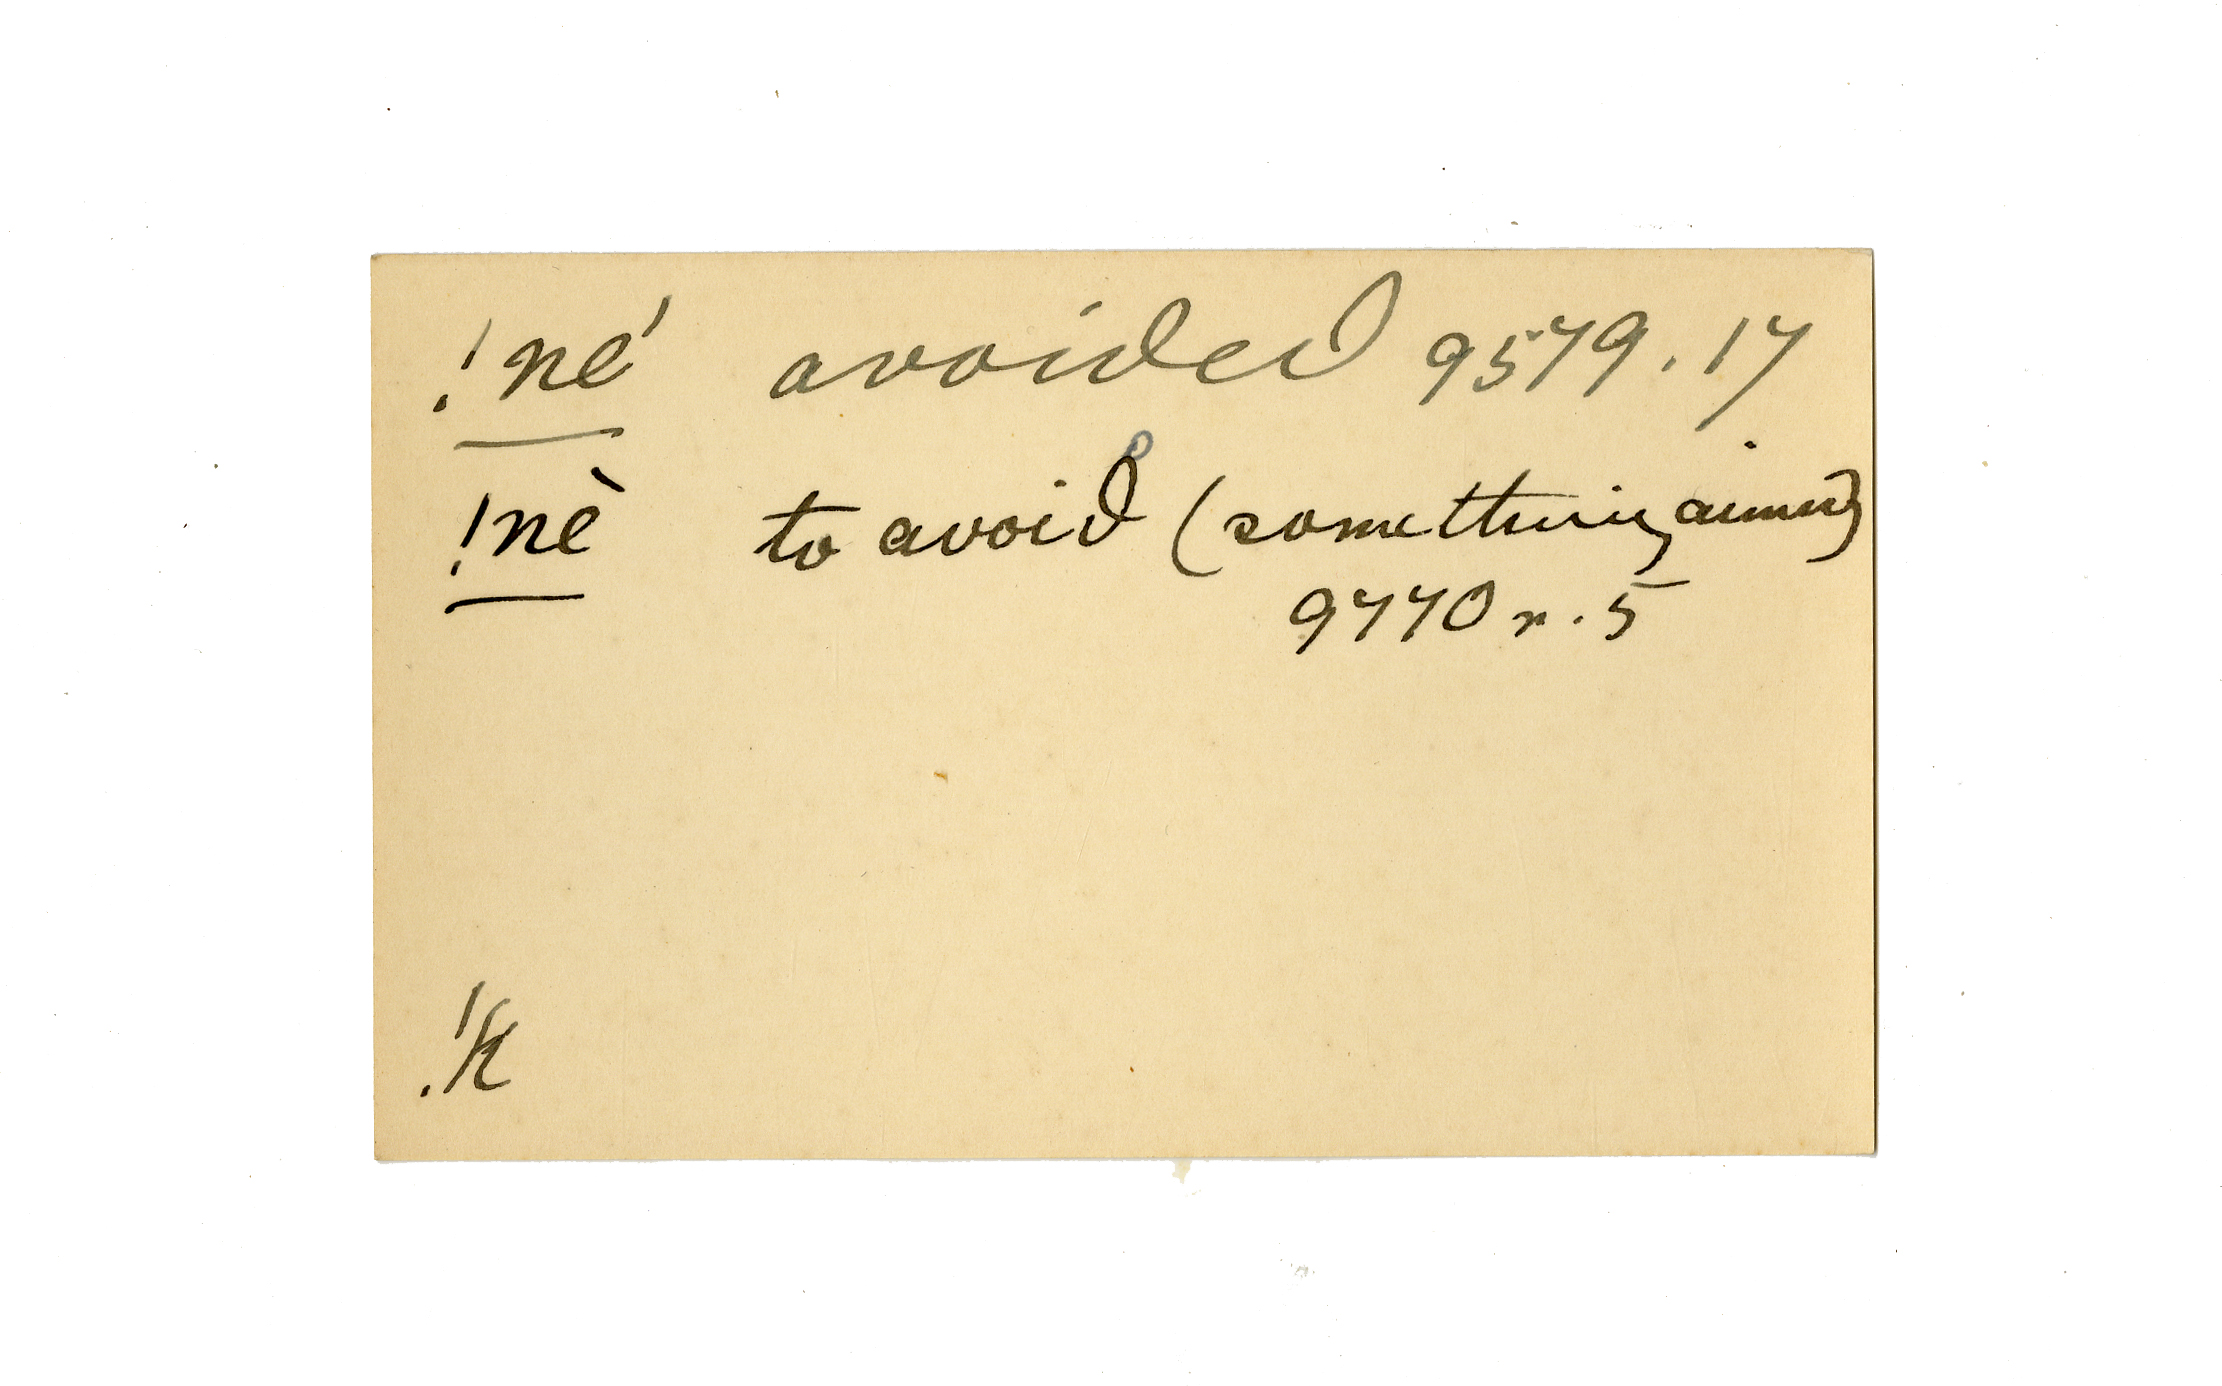 !né avoided 9579.17
!nè to avoid (something aimed)
9770 r. 5
!k